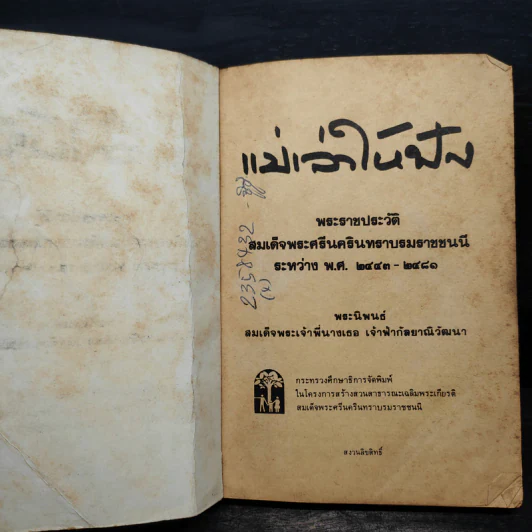 แม่เล่าให้ฟัง
พระราชประวัติ
สมเด็จพระศรีนครินทราบรมราชชนนี
ระหว่าง พ.ศ. ๒๔๔๓ - ๒๔๘๑
พระนิพนธ์
สมเด็จพระเจ้าพี่นางเธอ เจ้าฟ้ากัลยาณิวัฒนา
กระทรวงศึกษาธิการจัดพิมพ์
ในโครงการสร้างสวนสาธารณะเฉลิมพระเกียรติ
สมเด็จพระศรีนครินทราบรมราชชนนี
สงวนลิขสิทธิ์